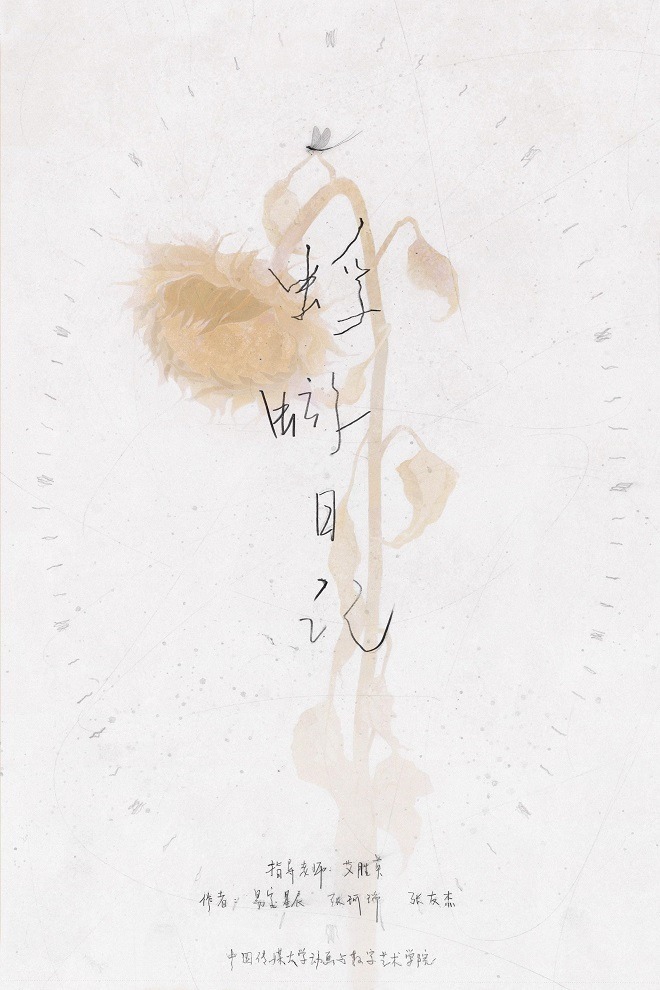 蜉蝣日记
指导老师：艾胜英
作者：易宝星辰 张珂瑞 张友杰
中国传媒大学动画与数字艺术学院